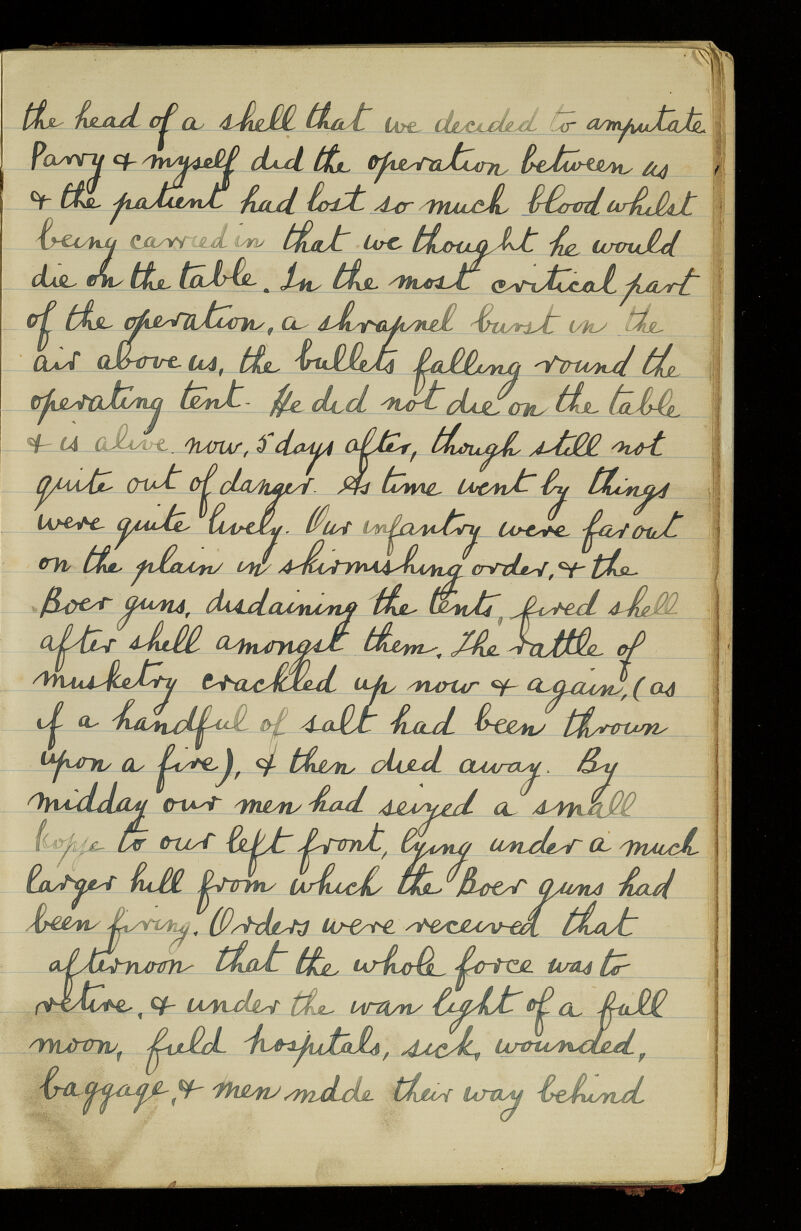 the head of a shell that we decided to amputate.
Parry & myself did the operation between us
& the patient had lost so much blood whilst
being carried in that we thought he would
die on the table. In the most critical part
of the operation, a shrapnel burst in the
air above us, the bullets falling round the
operating tent. He did not die on the table
& is alive now, 5 days after, though still not
quite out of danger. As time went by things
were quite lively. Our infantry were far out
on the plain in skirmishing order, & the
Boer guns, disdaining the tents, fired shell
after shell amongst them. The rattle of
musketry crackled up now & again, (as
if a handful of salt had been thrown
upon a fire), & then died away. By
midday our men had seized a small
kopje to our left front, lying under a much
larger hill from which the Boer guns had
been firing. Orders were received that
afternoon that the whole force was to
retire, & under the wan light of a full
moon, field hospitals, sick, wounded,
baggage, & men made their way behind